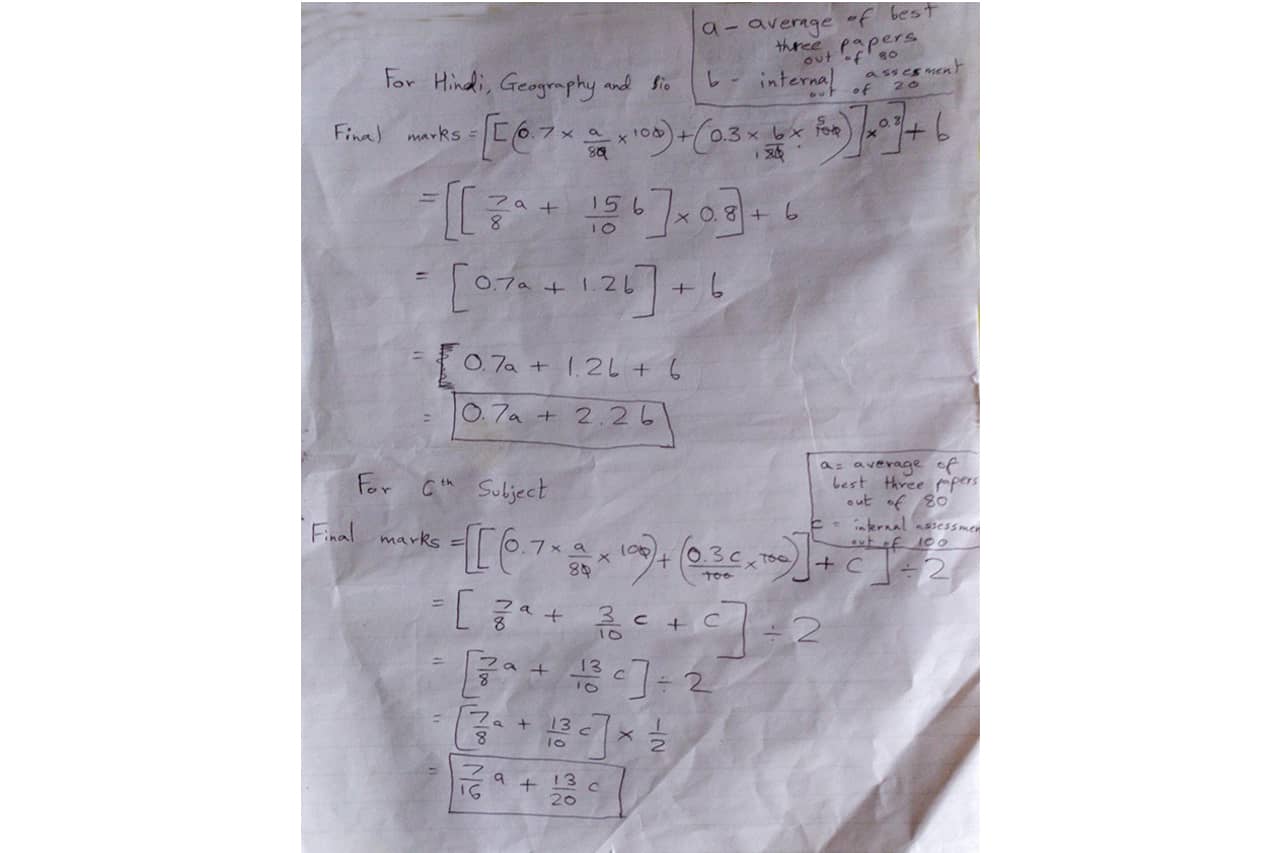 a - average of best
three papers
out of 80
b - internal assesment
out of 20
For Hindi, Geography and Bio
Final marks = [[(0.7 × a/80 × 100) + (0.3 × b/20 × 100)] × 0.8] + b
= [[7/8 a + 15/10 b] × 0.8] + b
= [0.7a + 1.2b] + b
= 0.7a + 1.2b + b
= 0.7a + 2.2b
a = average of
best three papers
out of 80
c = internal assessmen
out of 100
For 6th Subject
Final marks = [[(0.7 × a/80 × 100) + (0.3c/100 × 100)] + c] ÷ 2
= [7/8 a + 3/10 c + c] ÷ 2
= [7/8 a + 13/10 c] ÷ 2
= [7/8 a + 13/10 c] × 1/2
= 7/16 a + 13/20 c